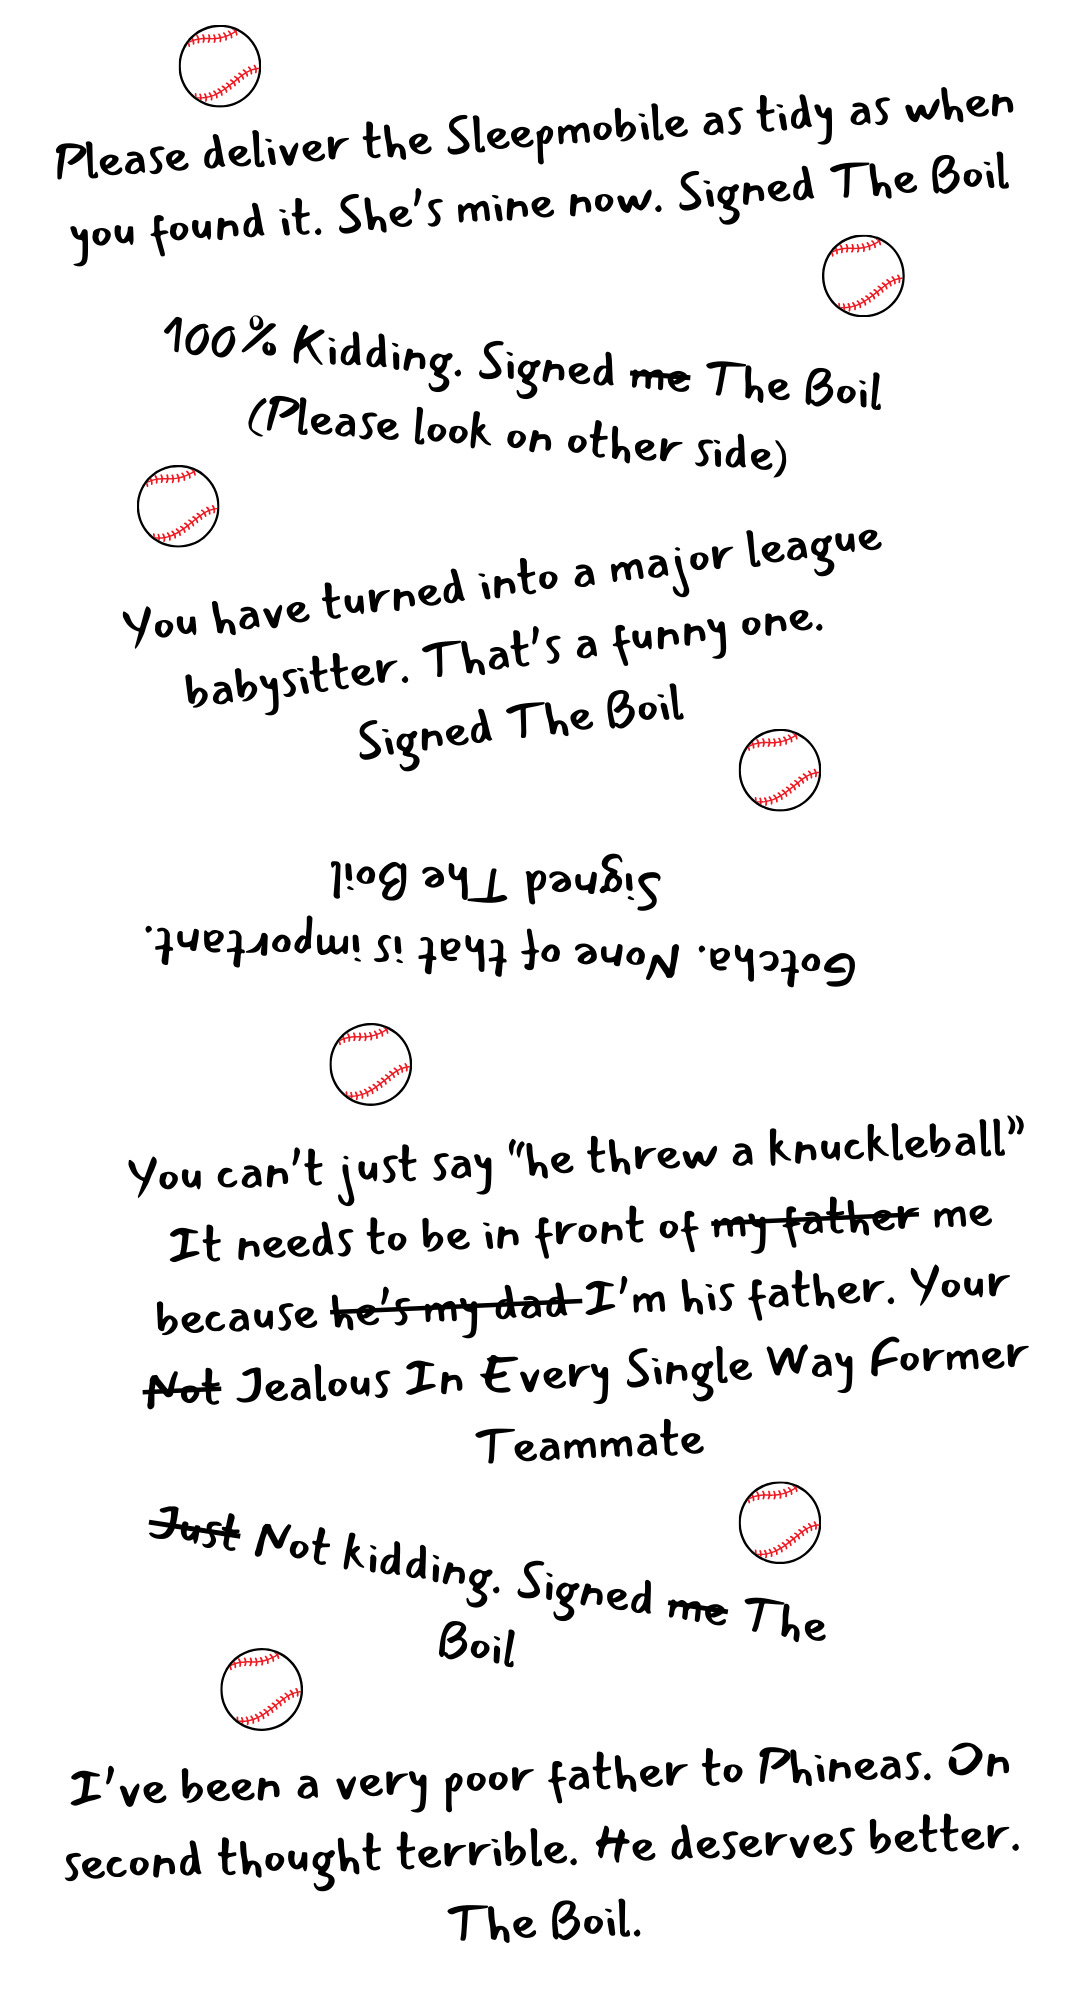 Please deliver the Sleepmobile as tidy as when
you found it. She's mine now. Signed The Boil
100% Kidding. Signed ~~me~~ The Boil
(Please look on other side)
You have turned into a major league
babysitter. That's a funny one.
Signed The Boil
Gotcha. None of that is important.
Signed The Boil
You can't just say "he threw a knuckleball"
It needs to be in front of ~~my father~~ me
because ~~he's my dad~~ I'm his father. Your
~~Not~~ Jealous In Every Single Way Former
Teammate
~~Just~~ Not kidding. Signed ~~me~~ The
Boil
I've been a very poor father to Phineas. On
second thought terrible. He deserves better.
The Boil.